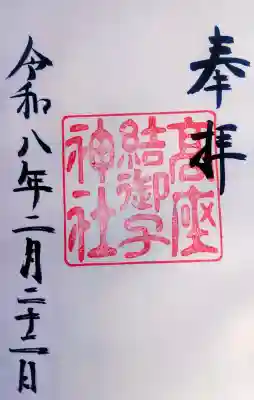 奉拝
髙座
結御子
神社
令和八年二月二十二日